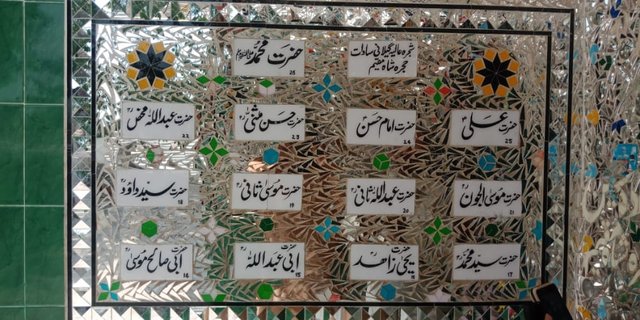 شجرہ عالیہ گیلانی سادات
حجرہ شاہ مقیم
حضرت محمد ﷺ
26
حضرت علیؓ
25
حضرت امام حسنؓ
24
حضرت حسن مثنیٰؓ
23
حضرت عبداللہ محضؓ
22
حضرت موسیٰ الجونؓ
21
حضرت عبداللہ ثانیؓ
20
حضرت موسیٰ ثانیؓ
19
حضرت سید داؤدؓ
18
حضرت سید محمدؓ
17
حضرت
یحییٰ زاھد
16
حضرت
ابی عبداللہ
15
حضرت
ابی صالح موسیٰؓ